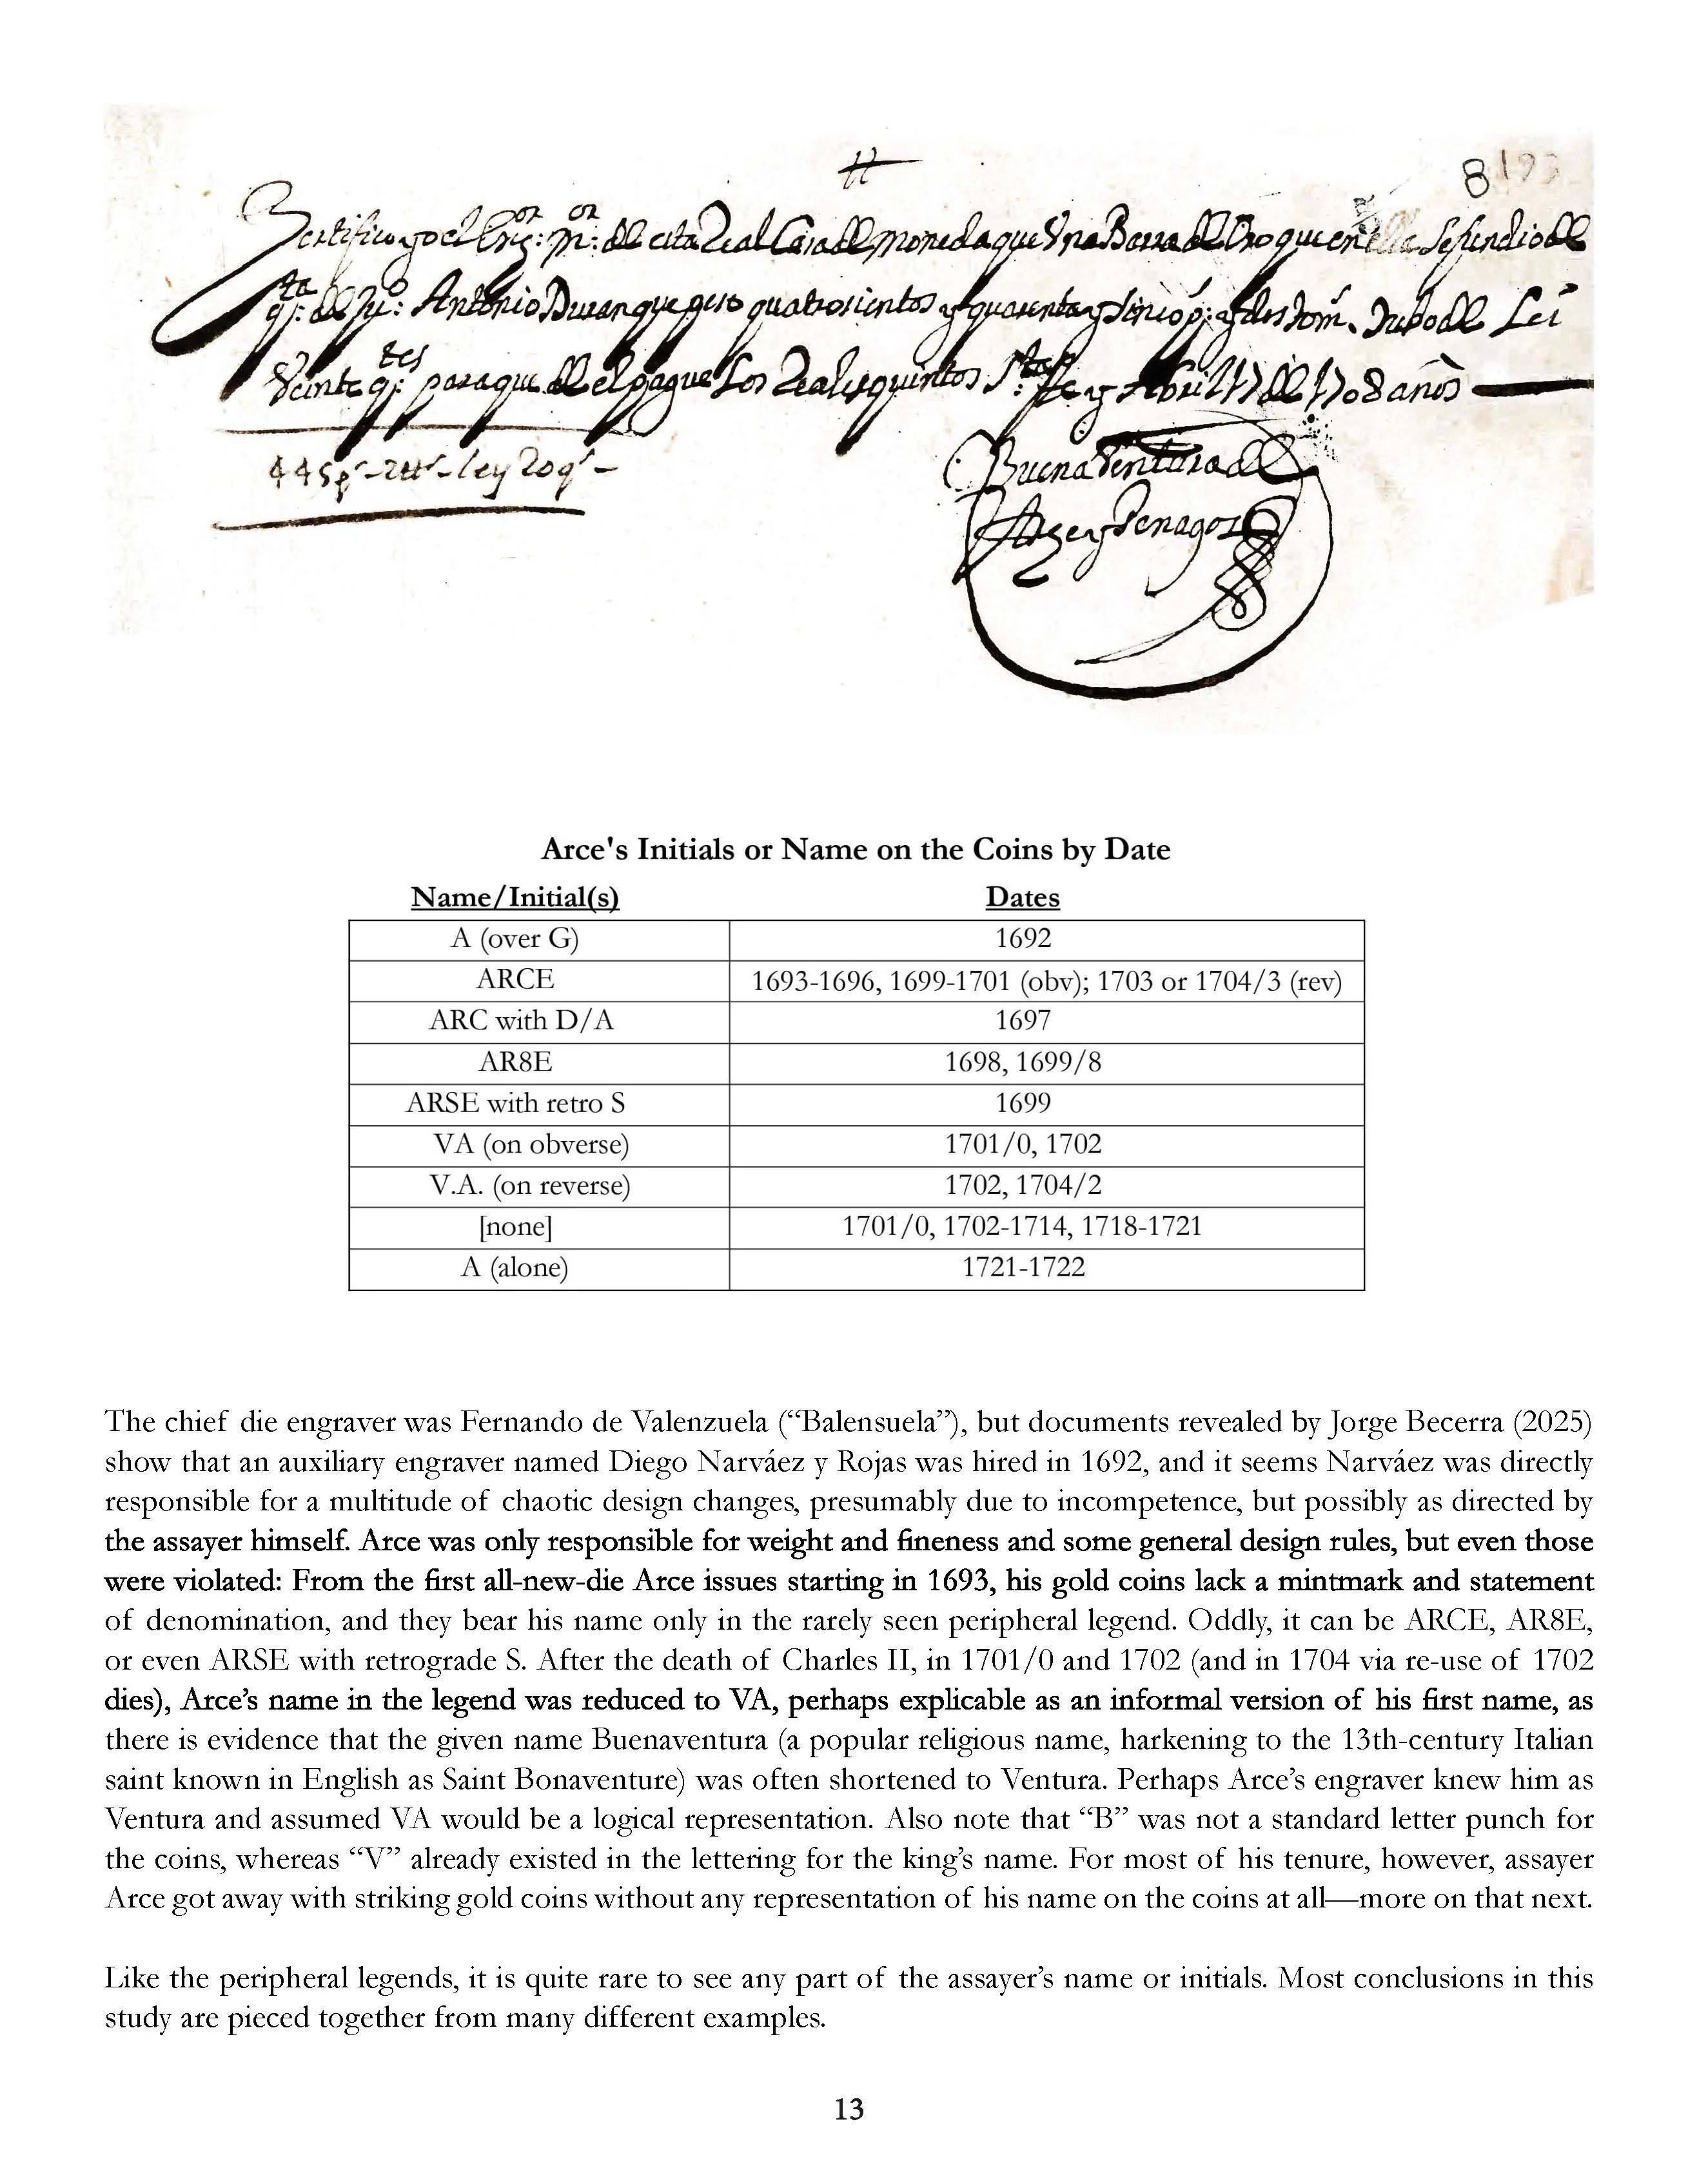 8 193
Zertifico yo el Ens:or m:or de esta Real Casa de moneda que Vna Barra de Oro que en ella Se fundio de
q:ta de Ju:o Antonio Duran que peso quatrosientos y quarenta y Sinco p: y dos tom.s Tubo de Lei
Veinte q:tes para que de el pague Los Reales quintos S:ta fe y Abril 17 de 1708 años
445 ps - 2 tts - ley 20 qs -
Buena Ventura de
Arze y Penagos
Arce's Initials or Name on the Coins by Date
Name/Initial(s) Dates
A (over G) 1692
ARCE 1693-1696, 1699-1701 (obv); 1703 or 1704/3 (rev)
ARC with D/A 1697
AR8E 1698, 1699/8
ARSE with retro S 1699
VA (on obverse) 1701/0, 1702
V.A. (on reverse) 1702, 1704/2
[none] 1701/0, 1702-1714, 1718-1721
A (alone) 1721-1722
The chief die engraver was Fernando de Valenzuela (“Balensuela”), but documents revealed by Jorge Becerra (2025)
show that an auxiliary engraver named Diego Narváez y Rojas was hired in 1692, and it seems Narváez was directly
responsible for a multitude of chaotic design changes, presumably due to incompetence, but possibly as directed by
the assayer himself. Arce was only responsible for weight and fineness and some general design rules, but even those
were violated: From the first all-new-die Arce issues starting in 1693, his gold coins lack a mintmark and statement
of denomination, and they bear his name only in the rarely seen peripheral legend. Oddly, it can be ARCE, AR8E,
or even ARSE with retrograde S. After the death of Charles II, in 1701/0 and 1702 (and in 1704 via re-use of 1702
dies), Arce’s name in the legend was reduced to VA, perhaps explicable as an informal version of his first name, as
there is evidence that the given name Buenaventura (a popular religious name, harkening to the 13th-century Italian
saint known in English as Saint Bonaventure) was often shortened to Ventura. Perhaps Arce’s engraver knew him as
Ventura and assumed VA would be a logical representation. Also note that “B” was not a standard letter punch for
the coins, whereas “V” already existed in the lettering for the king’s name. For most of his tenure, however, assayer
Arce got away with striking gold coins without any representation of his name on the coins at all—more on that next.
Like the peripheral legends, it is quite rare to see any part of the assayer’s name or initials. Most conclusions in this
study are pieced together from many different examples.
13